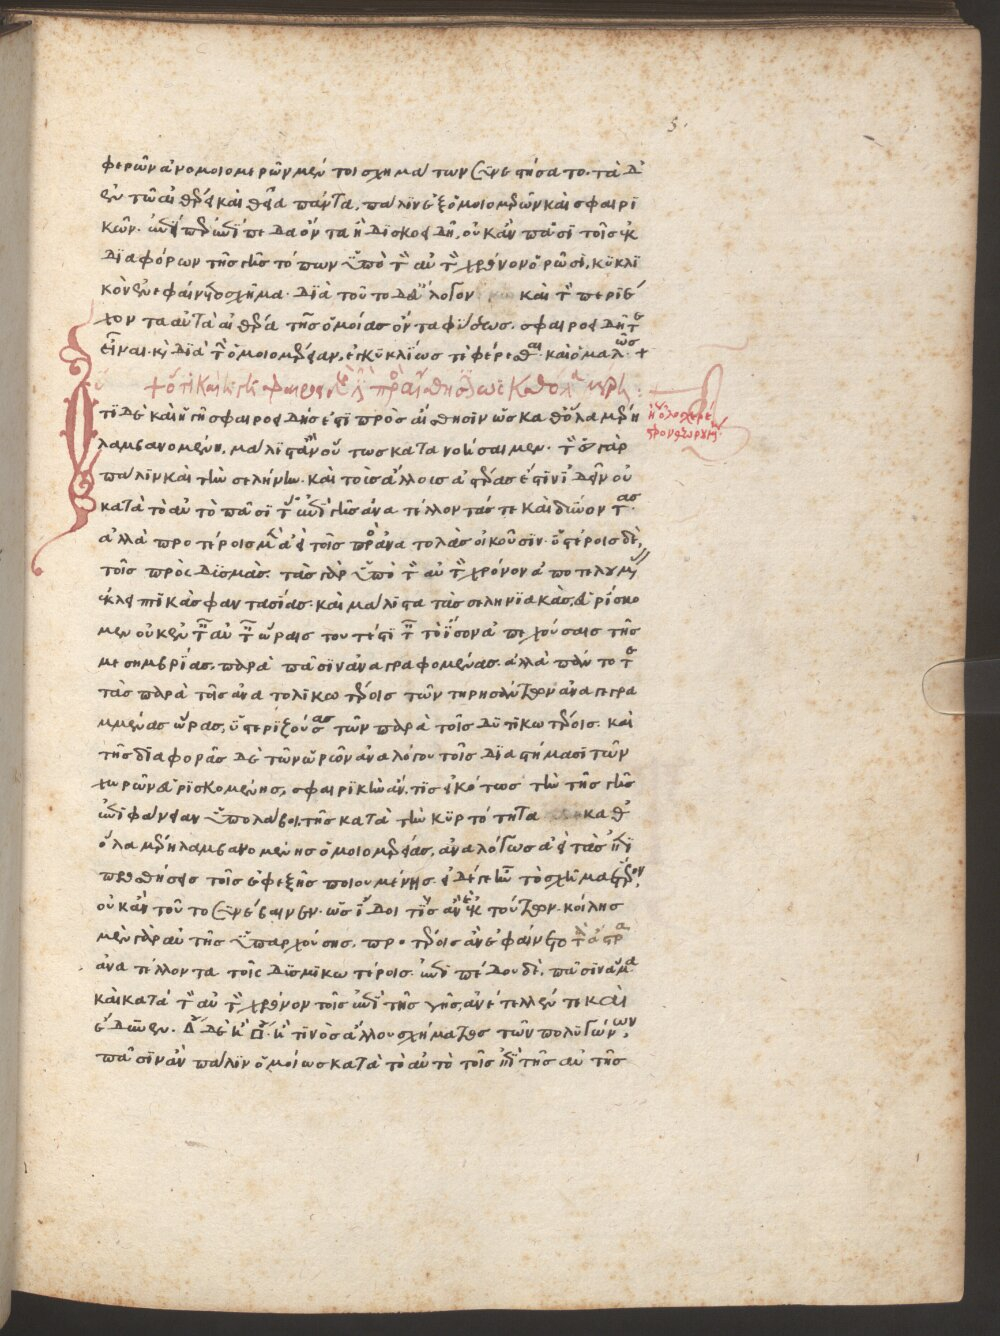 5.
φερῶν ἀνομοιομερῶν μέν τοι σχημάτων συνεστήσατο. τὰ δ
ἐν τῶ αἰθέρι καὶ θεῖα πάντα, πάλιν ἐξ ὁμοιομερῶν καὶ σφαιρι
κῶν. ἐπείπερ ἐπίπεδα ὄντα ἢ δισκοειδῆ, οὐκ ἂν πᾶσι τοῖς ἐκ
διαφόρων τῆς γῆς τόπων ὑπὸ τὸν αὐτὸν χρόνον ὁρῶσι, κυκλι
κὸν ἐνεφαίνετο σχῆμα. διὰ τοῦτο δ εὔλογον καὶ τὸν περιέ
χοντα αὐτὰ αἰθέρα τῆς ὁμοίας ὄντα φύσεως. σφαιροειδῆ τε
εἶναι. καὶ διὰ τὴν ὁμοιομέρειαν, ἐγκυκλίως τε φέρεσθαι. καὶ ὁμαλῶς +
+ ὅτι καὶ ἡ γῆ σφαιροειδής ἐστι πρὸς αἴσθησιν ὡς καθόλα μέρη :
ἡ ὁλοσχερέ
στρον θεωρουμ
τι δὲ καὶ ἡ γῆ σφαιροειδής ἐστι πρὸς αἴσθησιν ὡς καθόλα μέρη
λαμβανομένη, μάλιστ ἂν οὕτως κατανοήσαιμεν. τὸν ἥλιον γὰρ
πάλιν καὶ τὴν σελήνην. καὶ τοὺς ἄλλους ἀστέρας ἔστιν ἰδεῖν οὐ
κατὰ τὸ αὐτὸ πᾶσι τοῖς ἐπὶ γῆς ἀνατέλλοντάς τε καὶ δύνοντας.
ἀλλὰ προτέροις μὲν ἀεὶ τοῖς πρὸς ἀνατολὰς οἰκοῦσιν. ὑστέροις δὲ,
τοῖς πρὸς δυσμάς. τὰς γὰρ ὑπὸ τὸν αὐτὸν χρόνον ἀποτελουμ
ἐκλειπτικὰς φαντασίας. καὶ μάλιστα τὰς σεληνιακὰς, εὑρίσκο
μεν οὐκ ἐν ταῖς αὐταῖς ὥραις τουτέστι ταῖς τὸ ἴσον ἀπεχούσαις τῆς
μεσημβρίας. παρὰ πᾶσιν ἀναγραφομένας. ἀλλὰ πάντοτε
τὰς παρὰ τοῖς ἀνατολικωτέροις τῶν τηρησάντων ἀναγεγρα
μμένας ὥρας, ὑστεριζούσας τῶν παρὰ τοῖς δυτικωτέροις. καὶ
τῆς διαφορᾶς δὲ τῶν ὡρῶν ἀναλόγου τοῖς διαστήμασι τῶν
χωρῶν εὑρισκομένης, σφαιρικὴν ἄν τις εἰκότως τὴν τῆς γῆς
ἐπιφάνειαν ὑπολάβοι. τῆς κατὰ τὴν κυρτότητα καθ
ὅλα μέρη λαμβανομένης ὁμοιομερείας, ἀναλόγως ἀεὶ τὰς ἐπι
προσθήσεις τοῖς ἐφεξῆς ποιουμένης. εἰ δέ γε ἦν τὸ σχῆμα ἕτερον,
οὐκ ἂν τοῦτο συνέβαινεν. ὡς ἴδοι τις ἂν καὶ ἐκ τούτων. κοίλης
μὲν γὰρ αὐτῆς ὑπαρχούσης. προτέροις ἂν ἐφαίνετο τὰ ἄστρα
ἀνατέλλοντα τοῖς δυσμικωτέροις. ἐπιπέδου δὲ, πᾶσιν ἅμα
καὶ κατὰ τὸν αὐτὸν χρόνον τοῖς ἐπὶ τῆς γῆς, ἀνέτελλέν τε καὶ
ἔδυνεν. τριγώνου δὲ ἢ τετραγώνου ἤ τινος ἄλλου σχήματος τῶν πολυγώνων,
πᾶσιν ἂν πάλιν ὁμοίως κατὰ τὸ αὐτὸ τοῖς ἐπὶ τῆς αὐτῆς